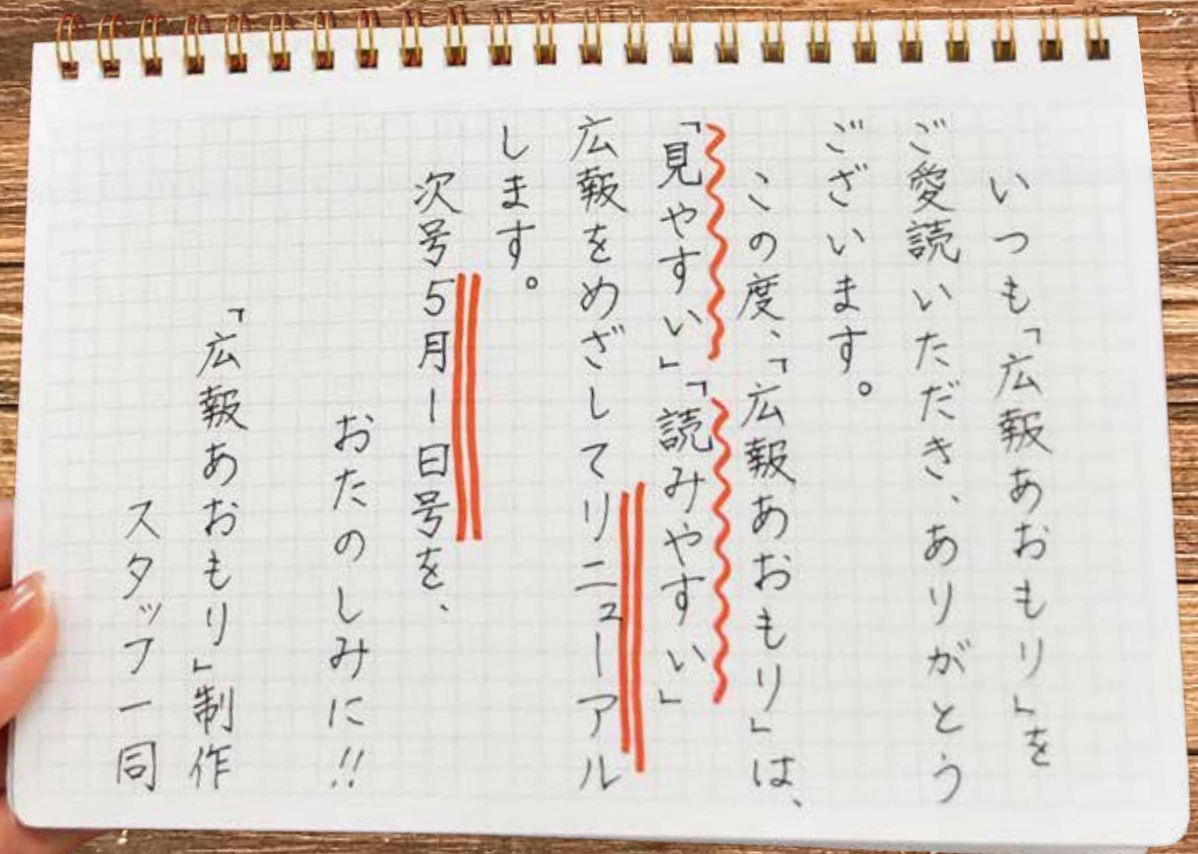 いつも「広報あおもり」を
ご愛読いただき、ありがとう
ございます。
この度、「広報あおもり」は、
「見やすい」「読みやすい」
広報をめざしてリニューアル
します。
次号5月1日号を、
おたのしみに!!
「広報あおもり」制作
スタッフ一同